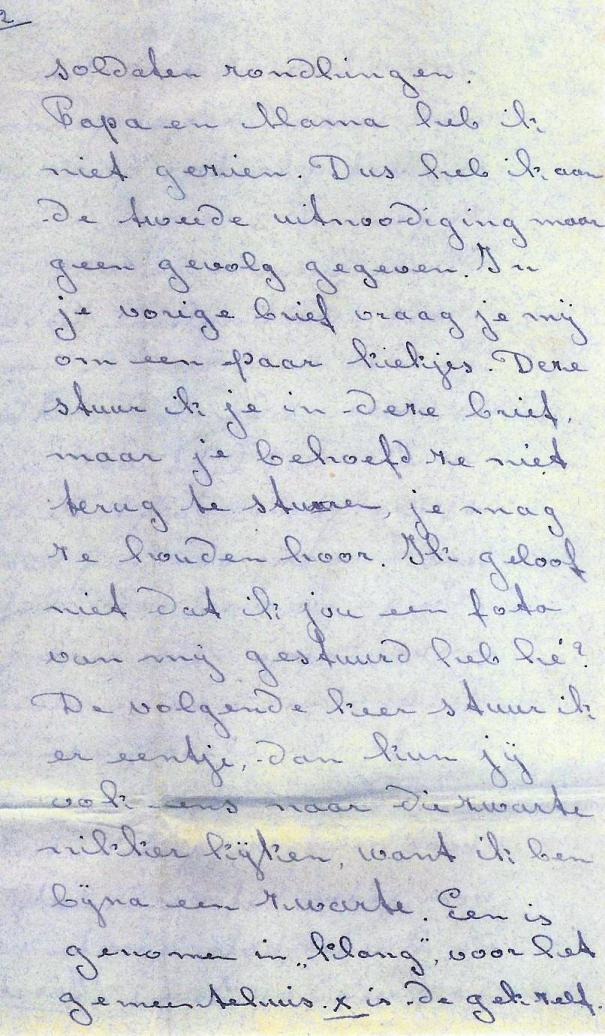 2
soldaten rondhingen.
Papa en Mama heb ik
niet gezien. Dus heb ik aan
de tweede uitnoodiging maar
geen gevolg gegeven. In
je vorige brief vraag je mij
om een paar kiekjes. Deze
stuur ik je in deze brief,
maar je behoefd ze niet
terug te sturen, je mag
ze houden hoor. Ik geloof
niet dat ik jou een foto
van mij gestuurd heb hé?
De volgende keer stuur ik
er eentje, dan kun jij
ook eens naar die zwarte
nikker kijken, want ik ben
bijna een zwarte. Een is
genomen in „Klang”, voor het
gemeentehuis. x is de gek zelf.